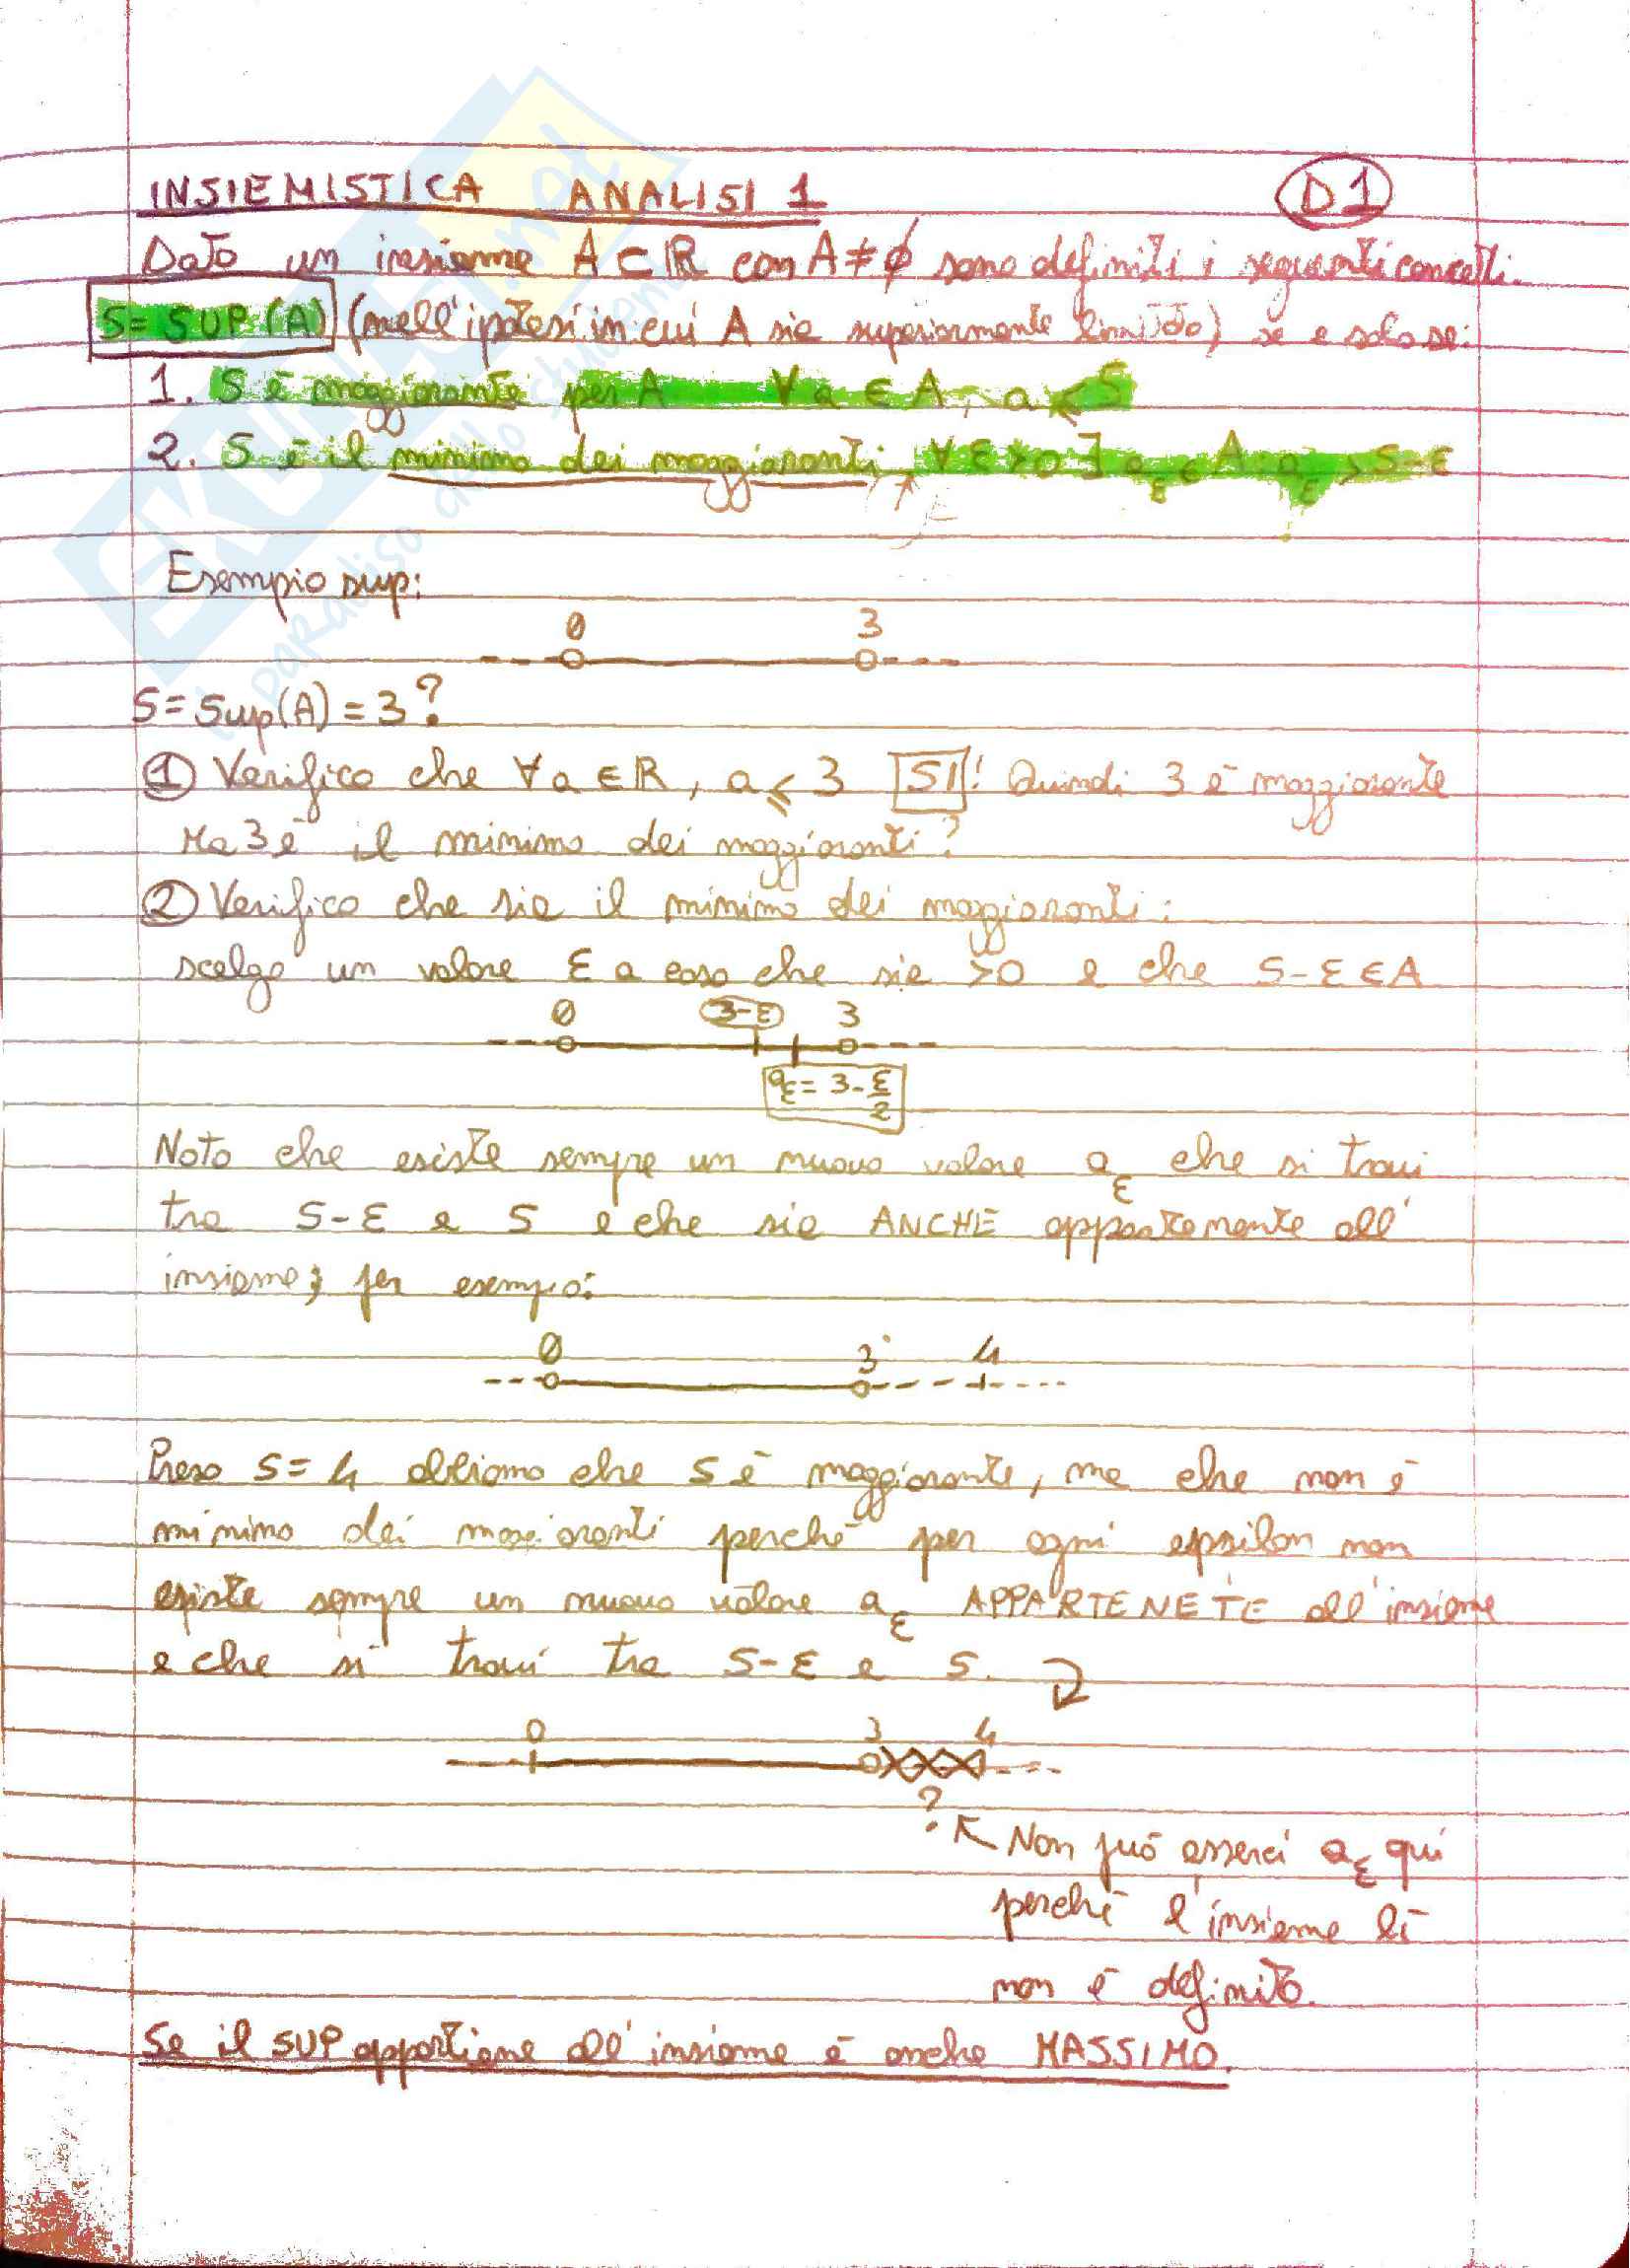 INSIEMISTICA ANALISI 1 D1
Dato un insieme A ⊂ ℝ con A ≠ ∅ sono definiti i seguenti concetti.
S = SUP (A) (nell'ipotesi in cui A sia superiormente limitato) se e solo se:
1. S è maggiorante per A ∀a ∈ A, a ≤ S
2. S è il minimo dei maggioranti, ∀ε>0 ∃ a_ε ∈ A : a_ε > S-ε
Esempio sup:
0 3
S = Sup(A) = 3?
① Verifico che ∀a ∈ ℝ, a ≤ 3 SI! Quindi 3 è maggiorante
Ma 3 è il minimo dei maggioranti?
② Verifico che sia il minimo dei maggioranti:
scelgo un valore ε a caso che sia >0 e che S-ε ∈ A
0 3-ε 3
a_ε = 3 - ε/2
Noto che esiste sempre un nuovo valore a_ε che si trovi
tra S-ε e S e che sia ANCHE appartenente all'
insieme; per esempio:
0 3 4
Preso S = 4 abbiamo che S è maggiorante, ma che non è
minimo dei maggioranti perchè per ogni epsilon non
esiste sempre un nuovo valore a_ε APPARTENETE all'insieme
e che si trovi tra S-ε e S.
0 3 4
?
Non può esserci a_ε qui
perchè l'insieme lì
non è definito.
Se il SUP appartiene all'insieme è anche MASSIMO.
SKUOLA.net
il paradiso dello studente